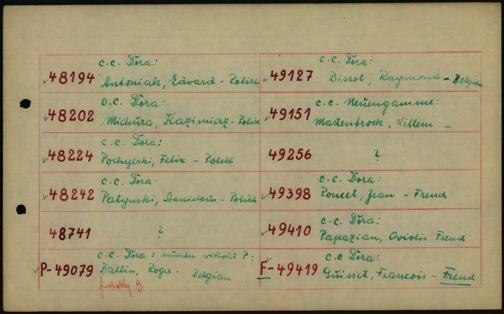 c.c. Dora:
48194 Antoniak, Edward - Polish
c.c. Dora:
48202 Michura, Kazimierz - Polish
c.c. Dora:
48224 Felix - Polish
c.c. Dora:
48242 Patynski, - Polish
48741 ?
c.c. Dora: without P:
P-49079 Ballin, Roger - Belgian
c.c. Dora:
49127 Bissot, Raymond - Belgian
c.c. Neuengamme:
49151 Mastenbroek, Willem -
49256 ?
c.c. Dora:
49398 Poncet, Jean - French
c.c. Dora:
49410 Papazian, French
c.c. Dora:
F-49419 Guisset, Francois - French